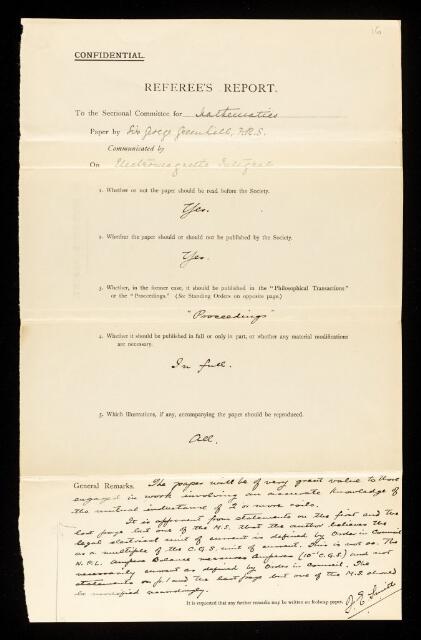 16
CONFIDENTIAL.
REFEREE'S REPORT.
To the Sectional Committee for Mathematics
Paper by Sir George Greenhill, F.R.S.
Communicated by
On Electromagnetic Integrals
1. Whether or not the paper should be read before the Society.
Yes.
2. Whether the paper should or should not be published by the Society.
Yes.
3. Whether, in the former case, it should be published in the "Philosophical Transactions"
or the "Proceedings." (See Standing Orders on opposite page.)
"Proceedings"
4. Whether it should be published in full or only in part, or whether any material modifications
are necessary.
In full.
5. Which illustrations, if any, accompanying the paper should be reproduced.
All.
General Remarks. The paper will be of very great value to those
engaged in work involving an accurate knowledge of
the mutual inductance of 2 or more coils.
It is apparent from statements on the first and the
last page but one of the M.S. that the author believes the
legal electrical unit of current is defined by Order in Council
as a multiple of the C.G.S. unit of current. This is not so. The
N.P.L. Ampere Balance measures Amperes (10⁻¹ C.G.S) and not
necessarily current as defined by Order in Council. The
statements on p1 and the last page but one of the M.S should
be modified accordingly.
J. E. Smith
It is requested that any further remarks may be written on foolscap paper.